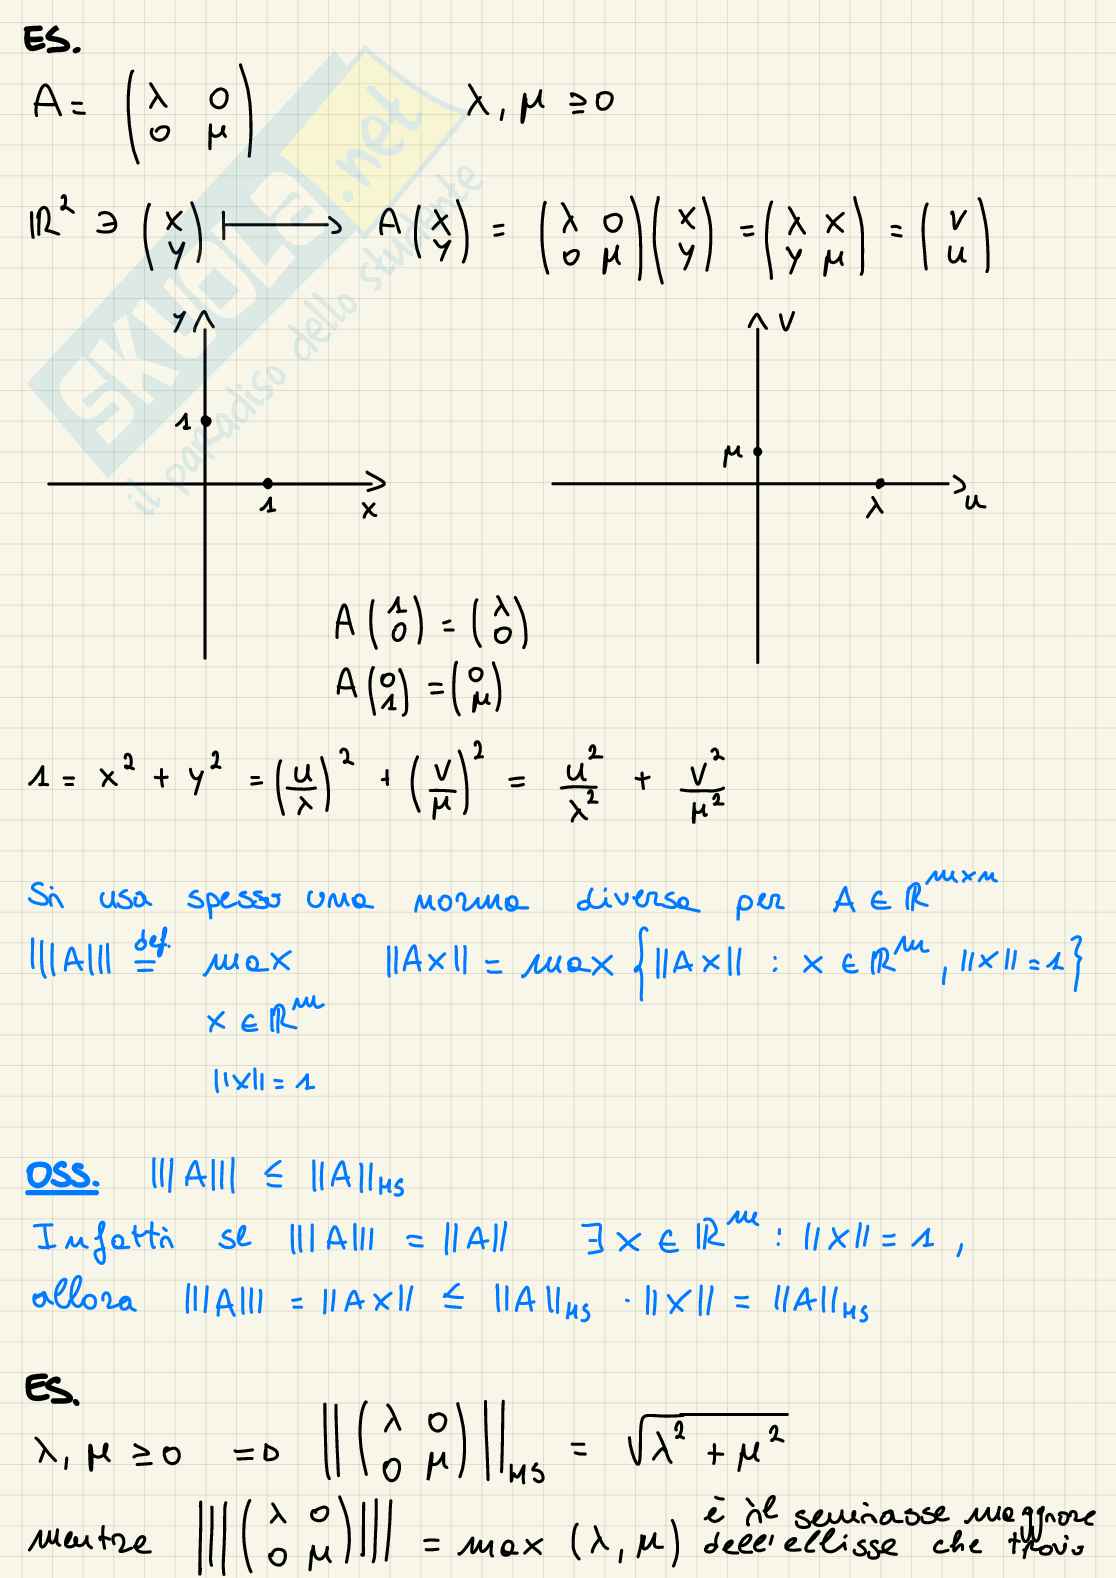 ES.
A = ( λ 0 ; 0 μ )   λ, μ ≥ 0
ℝ² ∋ ( x ; y ) ⟼ A ( x ; y ) = ( λ 0 ; 0 μ ) ( x ; y ) = ( λ x ; y μ ) = ( v ; u )
y   v
1   μ
1   x   λ   u
A ( 1 ; 0 ) = ( λ ; 0 )
A ( 0 ; 1 ) = ( 0 ; μ )
1 = x² + y² = (u/λ)² + (v/μ)² = u²/λ² + v²/μ²
Si usa spesso una norma diversa per A ∈ ℝ^{m×n}
|||A||| =^{def.} max ||Ax|| = max { ||Ax|| : x ∈ ℝ^m, ||x|| = 1 }
x ∈ ℝ^m
||x|| = 1
OSS. |||A||| ≤ ||A||_HS
Infatti se |||A||| = ||A|| ∃ x ∈ ℝ^m : ||x|| = 1 ,
allora |||A||| = ||Ax|| ≤ ||A||_HS · ||x|| = ||A||_HS
ES.
λ, μ ≥ 0 ⇒ || ( λ 0 ; 0 μ ) ||_HS = √(λ² + μ²)
mentre ||| ( λ 0 ; 0 μ ) ||| = max (λ, μ) è il semiasse maggiore
dell'ellisse che trovo
SKUOLA.net
il paradiso dello studente